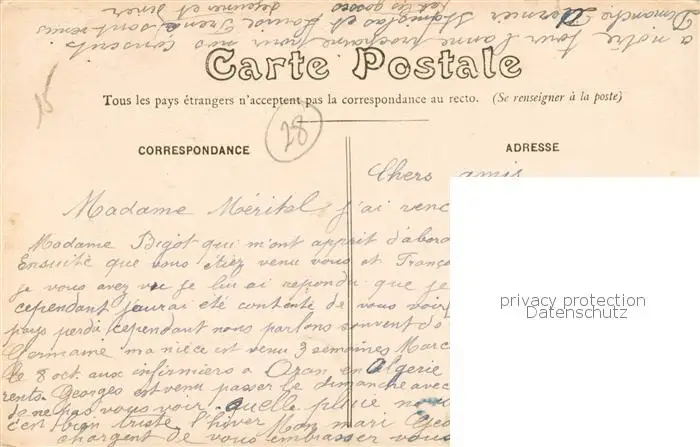 à notre tour l'anne prochaine pour nos conscrits
Dimanche Dernier Stanislas et Louise Trena sont venus
déjeuner et diner
Carte Postale
Tous les pays étrangers n'acceptent pas la correspondance au recto. (Se renseigner à la poste)
15
28
CORRESPONDANCE
ADRESSE
Chers amis
Madame Méritel j'ai renc
Madame Bigot qui m'ont apprit d'abord
Ensuite que vous étiez venu vous et Franço
je vous avez vu je lui ai repondu que je
cependant j'aurai été contente de vous voir
pays perdu cependant nous parlons souvent de
Germaine ma nièce est venu 3 semaines Marc
le 8 oct. aux infirmiers a Oran en Algérie
rents. Georges est venu passer le dimanche avec
de ne pas vous voir. quelle pluie no
c'est bien triste l'hiver Mon mari Geo
chargent de vous embrasser vous
privacy protection
Datenschutz